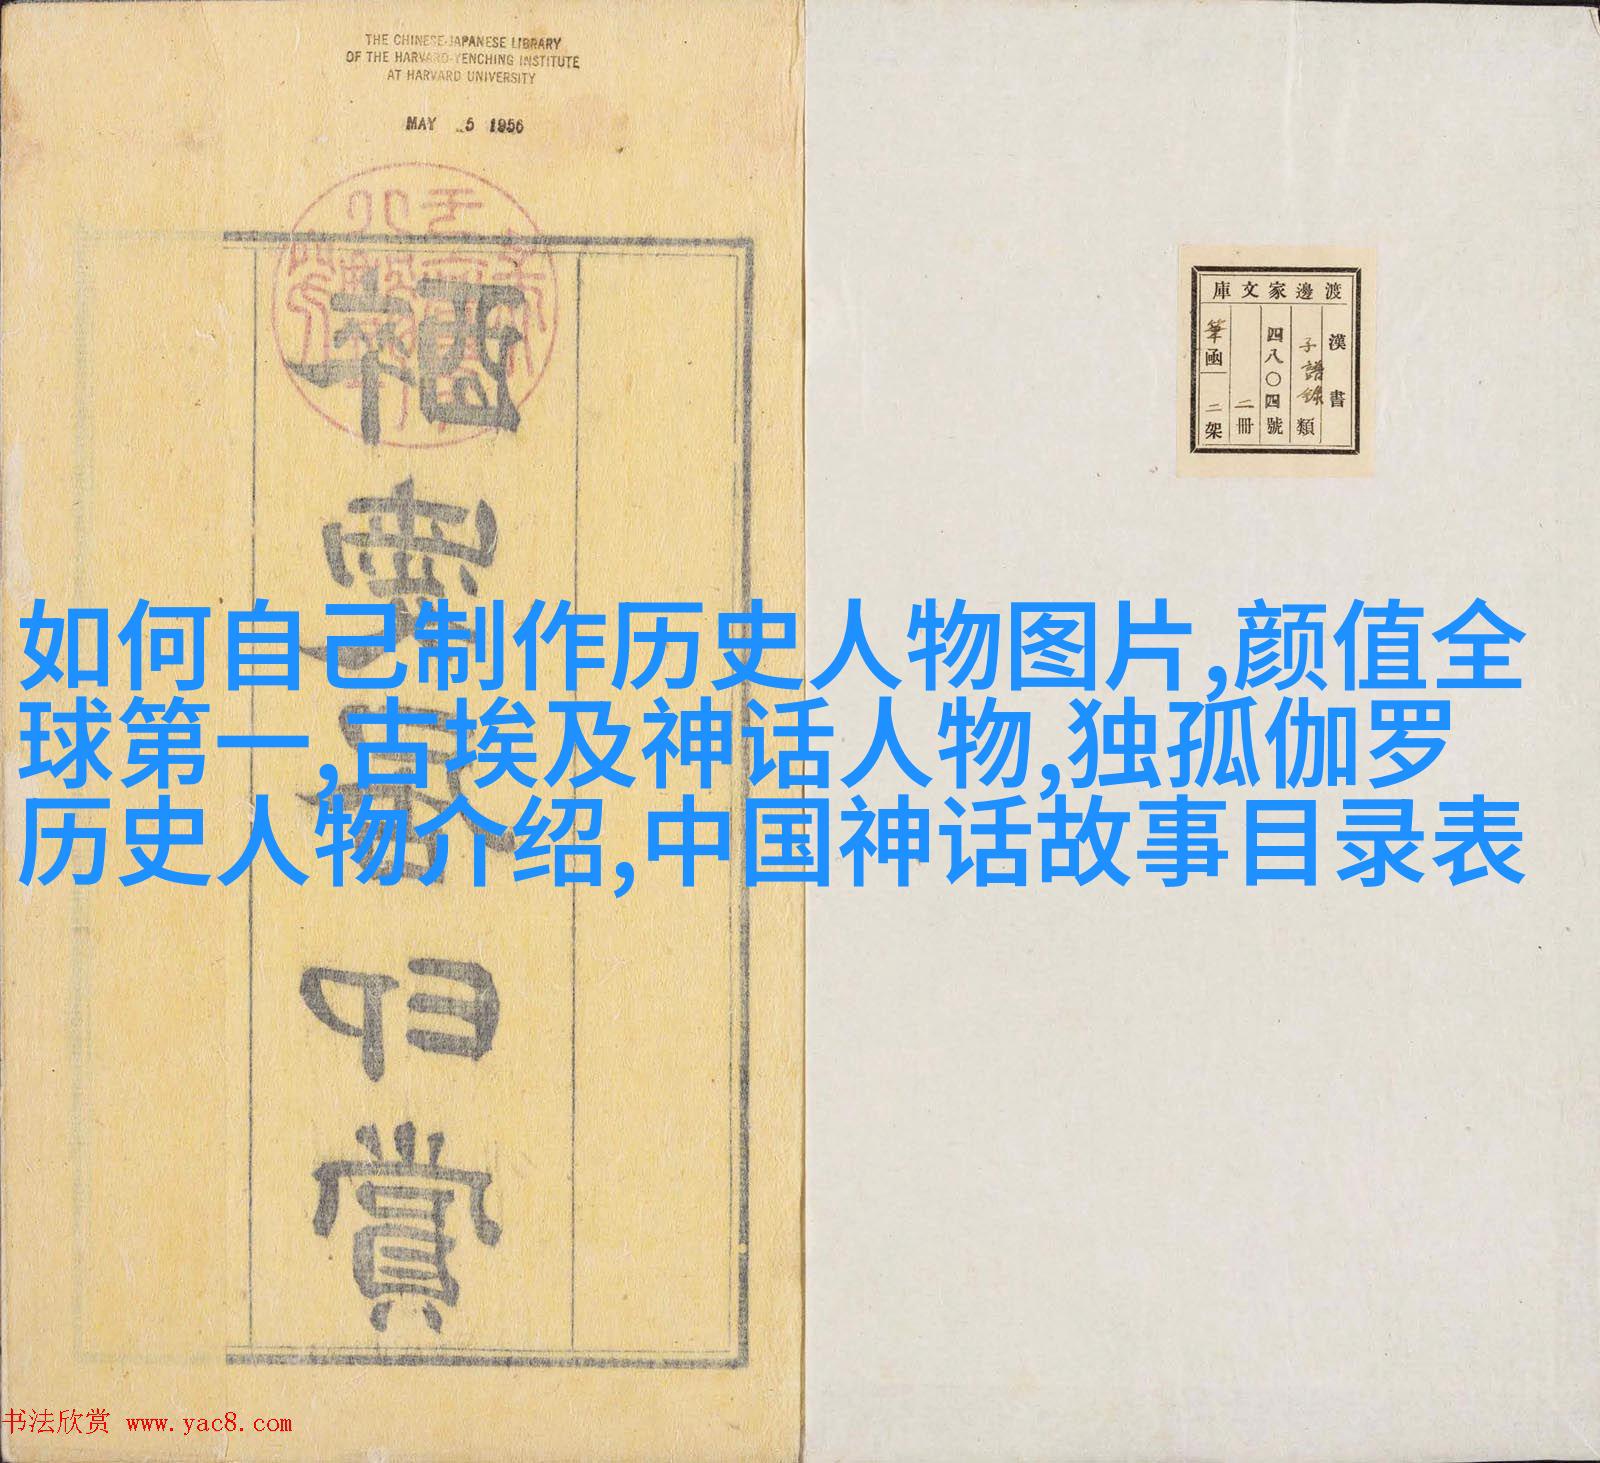 THE CHINESE-JAPANESE LIBRARY
OF THE HARVARD-YENCHING INSTITUTE
AT HARVARD UNIVERSITY
MAY 5 1956
印
賞
渡邊家文庫
漢書
子譜錄類
四八〇四號
二冊
筆函二架
如何自己制作历史人物图片,颜值全
球第一,古埃及神话人物,独孤伽罗
历史人物介绍,中国神话故事目录表
书法欣赏 www.yac8.com